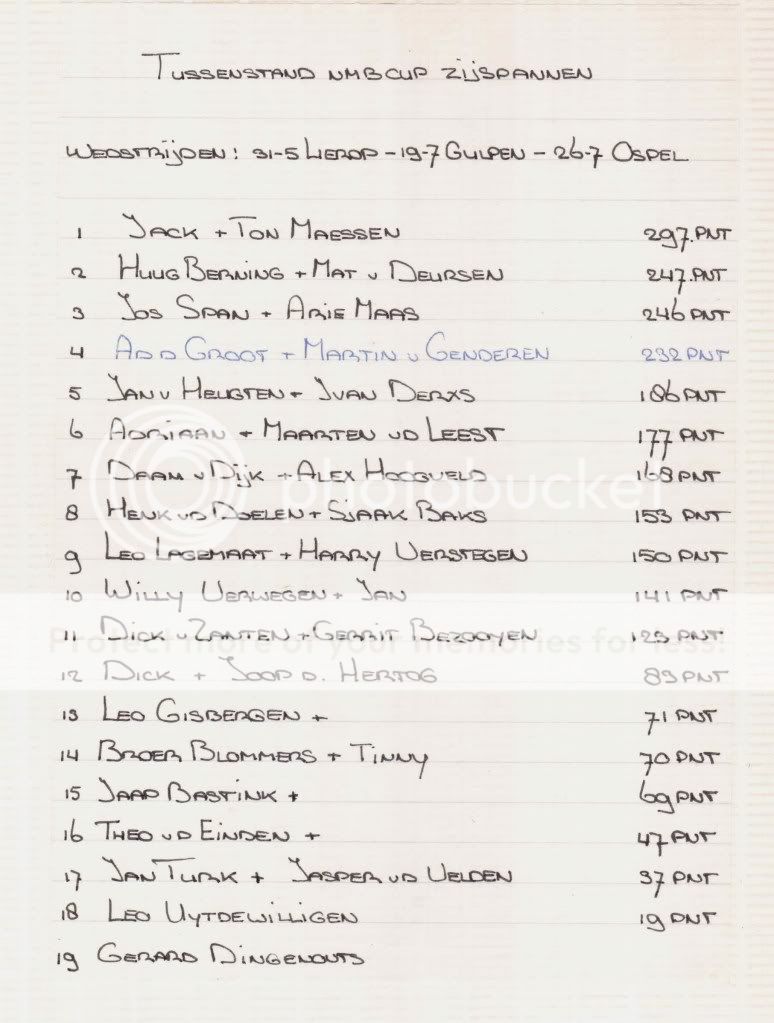 Tussenstand NMB cup zijspannen
Wedstrijden: 31-5 Lierop - 19-7 Gulpen - 26-7 Ospel
1 Jack + Ton Maessen 297.pnt
2 Huug Berning + Mat v Deursen 247.pnt
3 Jos Span + Arie Maas 246 pnt
4 Ad d Groot + Martin v Genderen 232 pnt
5 Jan v Heugten + Ivan Derks 186 pnt
6 Adriaan + Maarten vd Leest 177 pnt
7 Daam v Dijk + Alex Hoogveld 168 pnt
8 Henk vd Doelen + Sjaak Baks 153 pnt
9 Leo Lagemaat + Harry Verstegen 150 pnt
10 Willy Verwegen + Jan 141 pnt
11 Dick v Zanten + Gerrit Bezooyen 123 pnt
12 Dick + Joop d. Hertog 83 pnt
13 Leo Gisbergen + 71 pnt
14 Broer Blommers + Tinny 70 pnt
15 Jaap Bastink + 69 pnt
16 Theo vd Einden + 47 pnt
17 Jan Turk + Jasper vd Velden 37 pnt
18 Leo Uytdewilligen 19 pnt
19 Gerard Dingenouts
photobucket
Protect more of your memories for less!